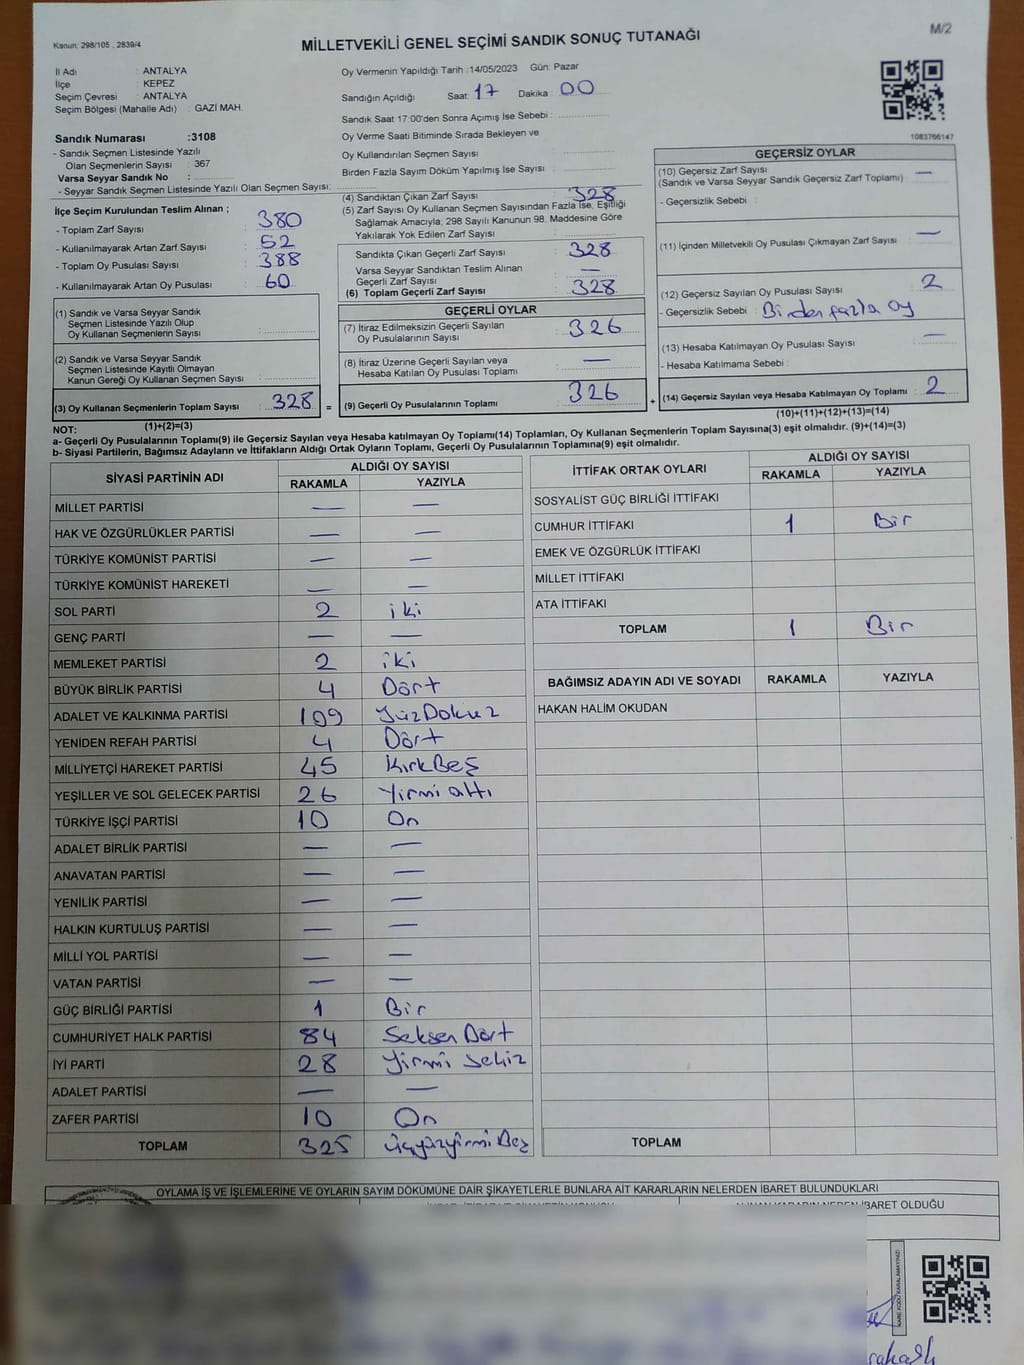 Kanun: 298/105 . 2839/4
MİLLETVEKİLİ GENEL SEÇİMİ SANDIK SONUÇ TUTANAĞI
M/2
İl Adı : ANTALYA
İlçe : KEPEZ
Seçim Çevresi : ANTALYA
Seçim Bölgesi (Mahalle Adı) : GAZİ MAH.
Sandık Numarası :3108
- Sandık Seçmen Listesinde Yazılı
Olan Seçmenlerin Sayısı : 367
Varsa Seyyar Sandık No :
- Seyyar Sandık Seçmen Listesinde Yazılı Olan Seçmen Sayısı:
Oy Vermenin Yapıldığı Tarih :14/05/2023 Gün: Pazar
Sandığın Açıldığı Saat: 17 Dakika 00
Sandık Saat 17:00'den Sonra Açımış İse Sebebi :
Oy Verme Saati Bitiminde Sırada Bekleyen ve
Oy Kullandırılan Seçmen Sayısı
Birden Fazla Sayım Döküm Yapılmış İse Sayısı
1083766147
İlçe Seçim Kurulundan Teslim Alınan ;
- Toplam Zarf Sayısı : 380
- Kullanılmayarak Artan Zarf Sayısı : 52
- Toplam Oy Pusulası Sayısı : 388
- Kullanılmayarak Artan Oy Pusulası : 60
(1) Sandık ve Varsa Seyyar Sandık
Seçmen Listesinde Yazılı Olup
Oy Kullanan Seçmenlerin Sayısı :
(2) Sandık ve Varsa Seyyar Sandık
Seçmen Listesinde Kayıtlı Olmayan
Kanun Gereği Oy Kullanan Seçmen Sayısı :
(3) Oy Kullanan Seçmenlerin Toplam Sayısı : 328 =
(1)+(2)=(3)
(4) Sandıktan Çıkan Zarf Sayısı : 328
(5) Zarf Sayısı Oy Kullanan Seçmen Sayısından Fazla İse, Eşitliği
Sağlamak Amacıyla, 298 Sayılı Kanunun 98. Maddesine Göre
Yakılarak Yok Edilen Zarf Sayısı :
Sandıkta Çıkan Geçerli Zarf Sayısı : 328
Varsa Seyyar Sandıktan Teslim Alınan
Geçerli Zarf Sayısı : —
(6) Toplam Geçerli Zarf Sayısı : 328
GEÇERLİ OYLAR
(7) İtiraz Edilmeksizin Geçerli Sayılan
Oy Pusulalarının Sayısı : 326
(8) İtiraz Üzerine Geçerli Sayılan veya
Hesaba Katılan Oy Pusulası Toplamı : —
(9) Geçerli Oy Pusulalarının Toplamı : 326 +
GEÇERSİZ OYLAR
(10) Geçersiz Zarf Sayısı
(Sandık ve Varsa Seyyar Sandık Geçersiz Zarf Toplamı) : —
- Geçersizlik Sebebi :
(11) İçinden Milletvekili Oy Pusulası Çıkmayan Zarf Sayısı : —
(12) Geçersiz Sayılan Oy Pusulası Sayısı : 2
- Geçersizlik Sebebi : Birden fazla oy
(13) Hesaba Katılmayan Oy Pusulası Sayısı : —
- Hesaba Katılmama Sebebi :
(14) Geçersiz Sayılan veya Hesaba Katılmayan Oy Toplamı : 2
(10)+(11)+(12)+(13)=(14)
NOT:
a- Geçerli Oy Pusulalarının Toplamı(9) ile Geçersiz Sayılan veya Hesaba katılmayan Oy Toplamı(14) Toplamları, Oy Kullanan Seçmenlerin Toplam Sayısına(3) eşit olmalıdır. (9)+(14)=(3)
b- Siyasi Partilerin, Bağımsız Adayların ve İttifakların Aldığı Ortak Oyların Toplamı, Geçerli Oy Pusulalarının Toplamına(9) eşit olmalıdır.
SİYASİ PARTİNİN ADI ALDIĞI OY SAYISI
RAKAMLA YAZIYLA
MİLLET PARTİSİ — —
HAK VE ÖZGÜRLÜKLER PARTİSİ — —
TÜRKİYE KOMÜNİST PARTİSİ — —
TÜRKİYE KOMÜNİST HAREKETİ — —
SOL PARTİ 2 iki
GENÇ PARTİ — —
MEMLEKET PARTİSİ 2 iki
BÜYÜK BİRLİK PARTİSİ 4 Dört
ADALET VE KALKINMA PARTİSİ 109 YüzDokuz
YENİDEN REFAH PARTİSİ 4 Dört
MİLLİYETÇİ HAREKET PARTİSİ 45 KırkBeş
YEŞİLLER VE SOL GELECEK PARTİSİ 26 Yirmi altı
TÜRKİYE İŞÇİ PARTİSİ 10 On
ADALET BİRLİK PARTİSİ — —
ANAVATAN PARTİSİ — —
YENİLİK PARTİSİ — —
HALKIN KURTULUŞ PARTİSİ — —
MİLLİ YOL PARTİSİ — —
VATAN PARTİSİ — —
GÜÇ BİRLİĞİ PARTİSİ 1 Bir
CUMHURİYET HALK PARTİSİ 84 Seksen Dört
İYİ PARTİ 28 Yirmi sekiz
ADALET PARTİSİ — —
ZAFER PARTİSİ 10 On
TOPLAM 325 üçyüzyirmi Beş
İTTİFAK ORTAK OYLARI ALDIĞI OY SAYISI
RAKAMLA YAZIYLA
SOSYALİST GÜÇ BİRLİĞİ İTTİFAKI
CUMHUR İTTİFAKI 1 Bir
EMEK VE ÖZGÜRLÜK İTTİFAKI
MİLLET İTTİFAKI
ATA İTTİFAKI
TOPLAM 1 Bir
BAĞIMSIZ ADAYIN ADI VE SOYADI RAKAMLA YAZIYLA
HAKAN HALİM OKUDAN
TOPLAM
OYLAMA İŞ VE İŞLEMLERİNE VE OYLARIN SAYIM DÖKÜMÜNE DAİR ŞİKAYETLERLE BUNLARA AİT KARARLARIN NELERDEN İBARET BULUNDUKLARI
İBARET OLDUĞU